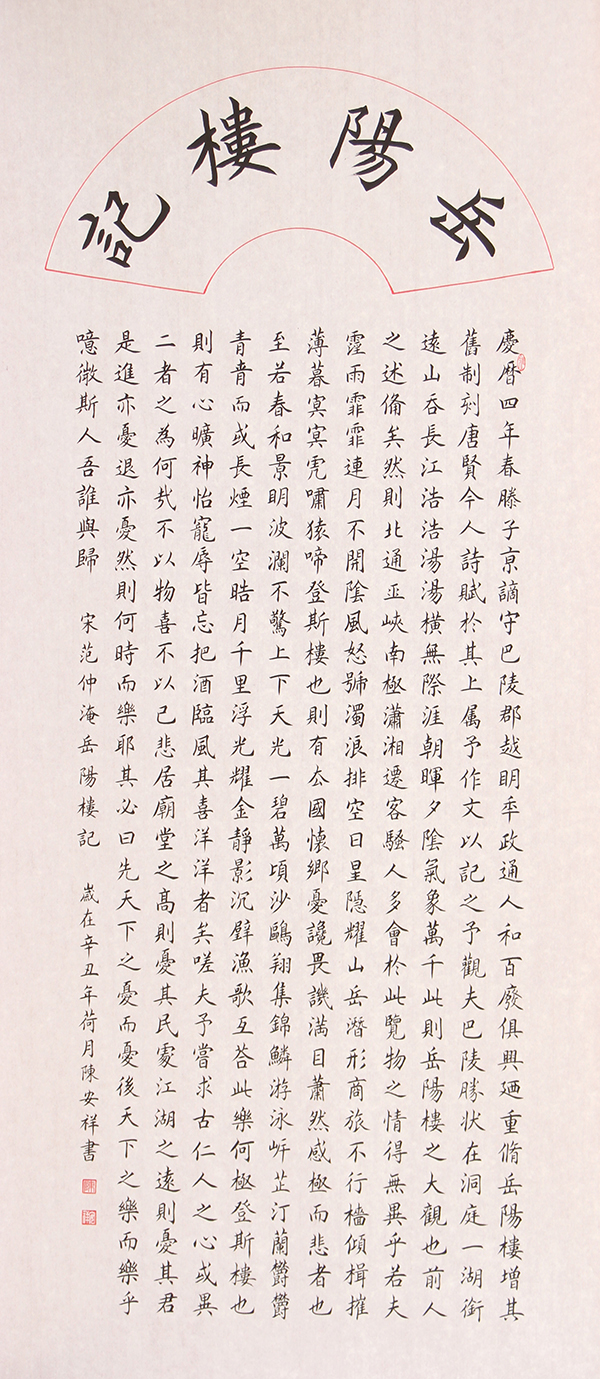 岳陽樓記
慶曆四年春滕子亰謫守巴陵郡越明秊政通人和百廢俱興廼重脩岳陽樓增其
舊制刻唐賢今人詩賦於其上属予作文以記之予觀夫巴陵勝状在洞庭一湖銜
遠山吞長江浩浩湯湯橫無際涯朝暉夕陰氣象萬千此則岳陽樓之大觀也前人
之述俻矣然則北通巫峽南極瀟湘遷客騷人多會於此覽物之情得無異乎若夫
霪雨霏霏連月不開陰風怒號濁浪排空日星隱耀山岳潛形商旅不行檣傾楫摧
薄暮冥冥虎嘯猿啼登斯樓也則有去國懷鄉憂讒畏譏滿目蕭然感極而悲者也
至若春和景明波瀾不驚上下天光一碧萬頃沙鷗翔集錦鱗游泳岸芷汀蘭欝欝
青青而或長煙一空皓月千里浮光耀金靜影沉璧漁歌互荅此樂何極登斯樓也
則有心曠神怡寵辱皆忘把酒臨風其喜洋洋者矣嗟夫予嘗求古仁人之心或異
二者之為何哉不以物喜不以己悲居廟堂之髙則憂其民處江湖之遠則憂其君
是進亦憂退亦憂然則何時而樂耶其必曰先天下之憂而憂後天下之樂而樂乎
噫微斯人吾誰與歸 宋范仲淹岳陽樓記 歲在辛丑年荷月陳安祥書